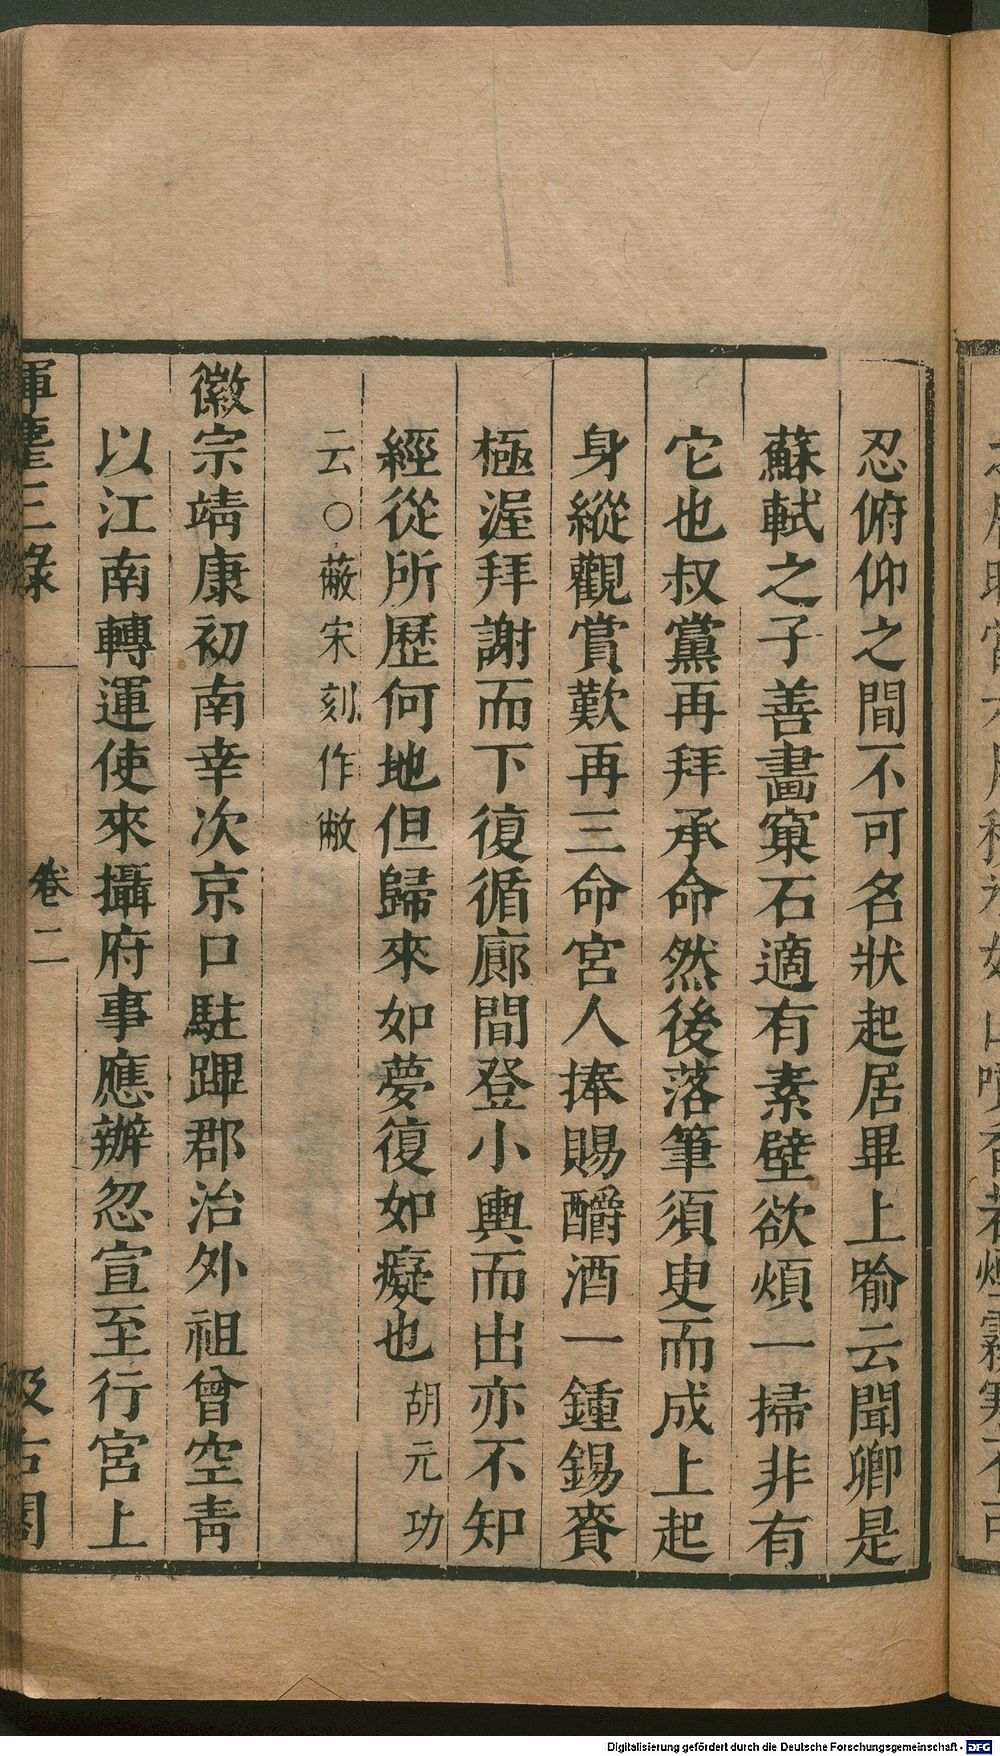 忍俯仰之間不可名狀起居畢上喻云聞卿是
蘇軾之子善畫窠石適有素壁欲煩一掃非有
它也叔黨再拜承命然後落筆須臾而成上起
身縱觀賞歎再三命宮人捧賜釂酒一鍾錫賚
極渥拜謝而下復循廊間登小輿而出亦不知
經從所歷何地但歸來如夢復如癡也胡元功
云○蔽宋刻作敝
徽宗靖康初南幸次京口駐蹕郡治外祖曾空青
以江南轉運使來攝府事應辦忽宣至行宮上
揮麈三錄 卷二 汲古閣
Digitalisierung gefördert durch die Deutsche Forschungsgemeinschaft - DFG